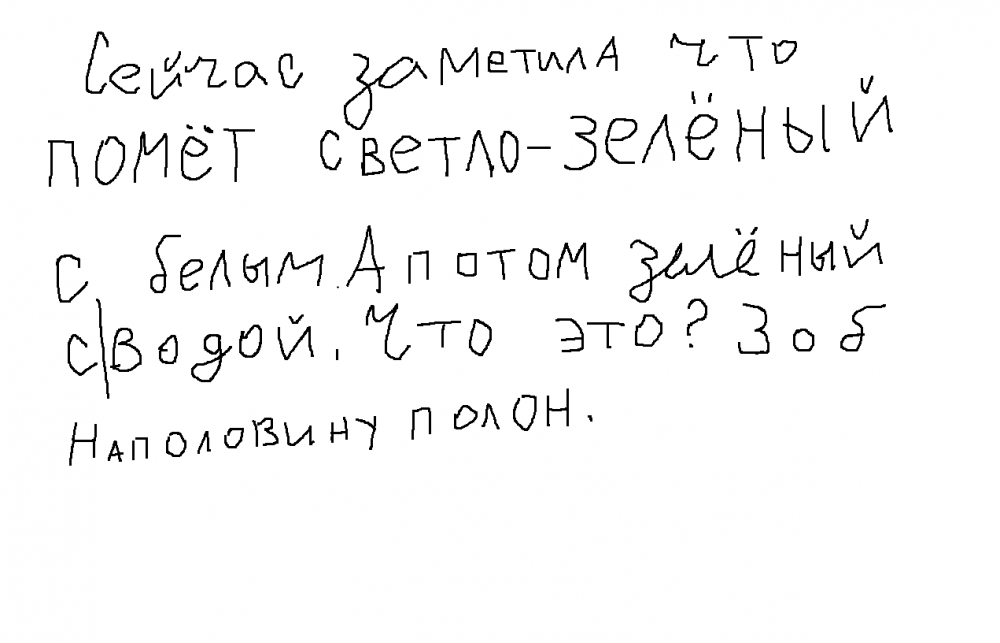 Сейчас заметила что
помёт светло-зелёный
с белым. А потом зелёный
с водой. Что это? Зоб
наполовину полон.